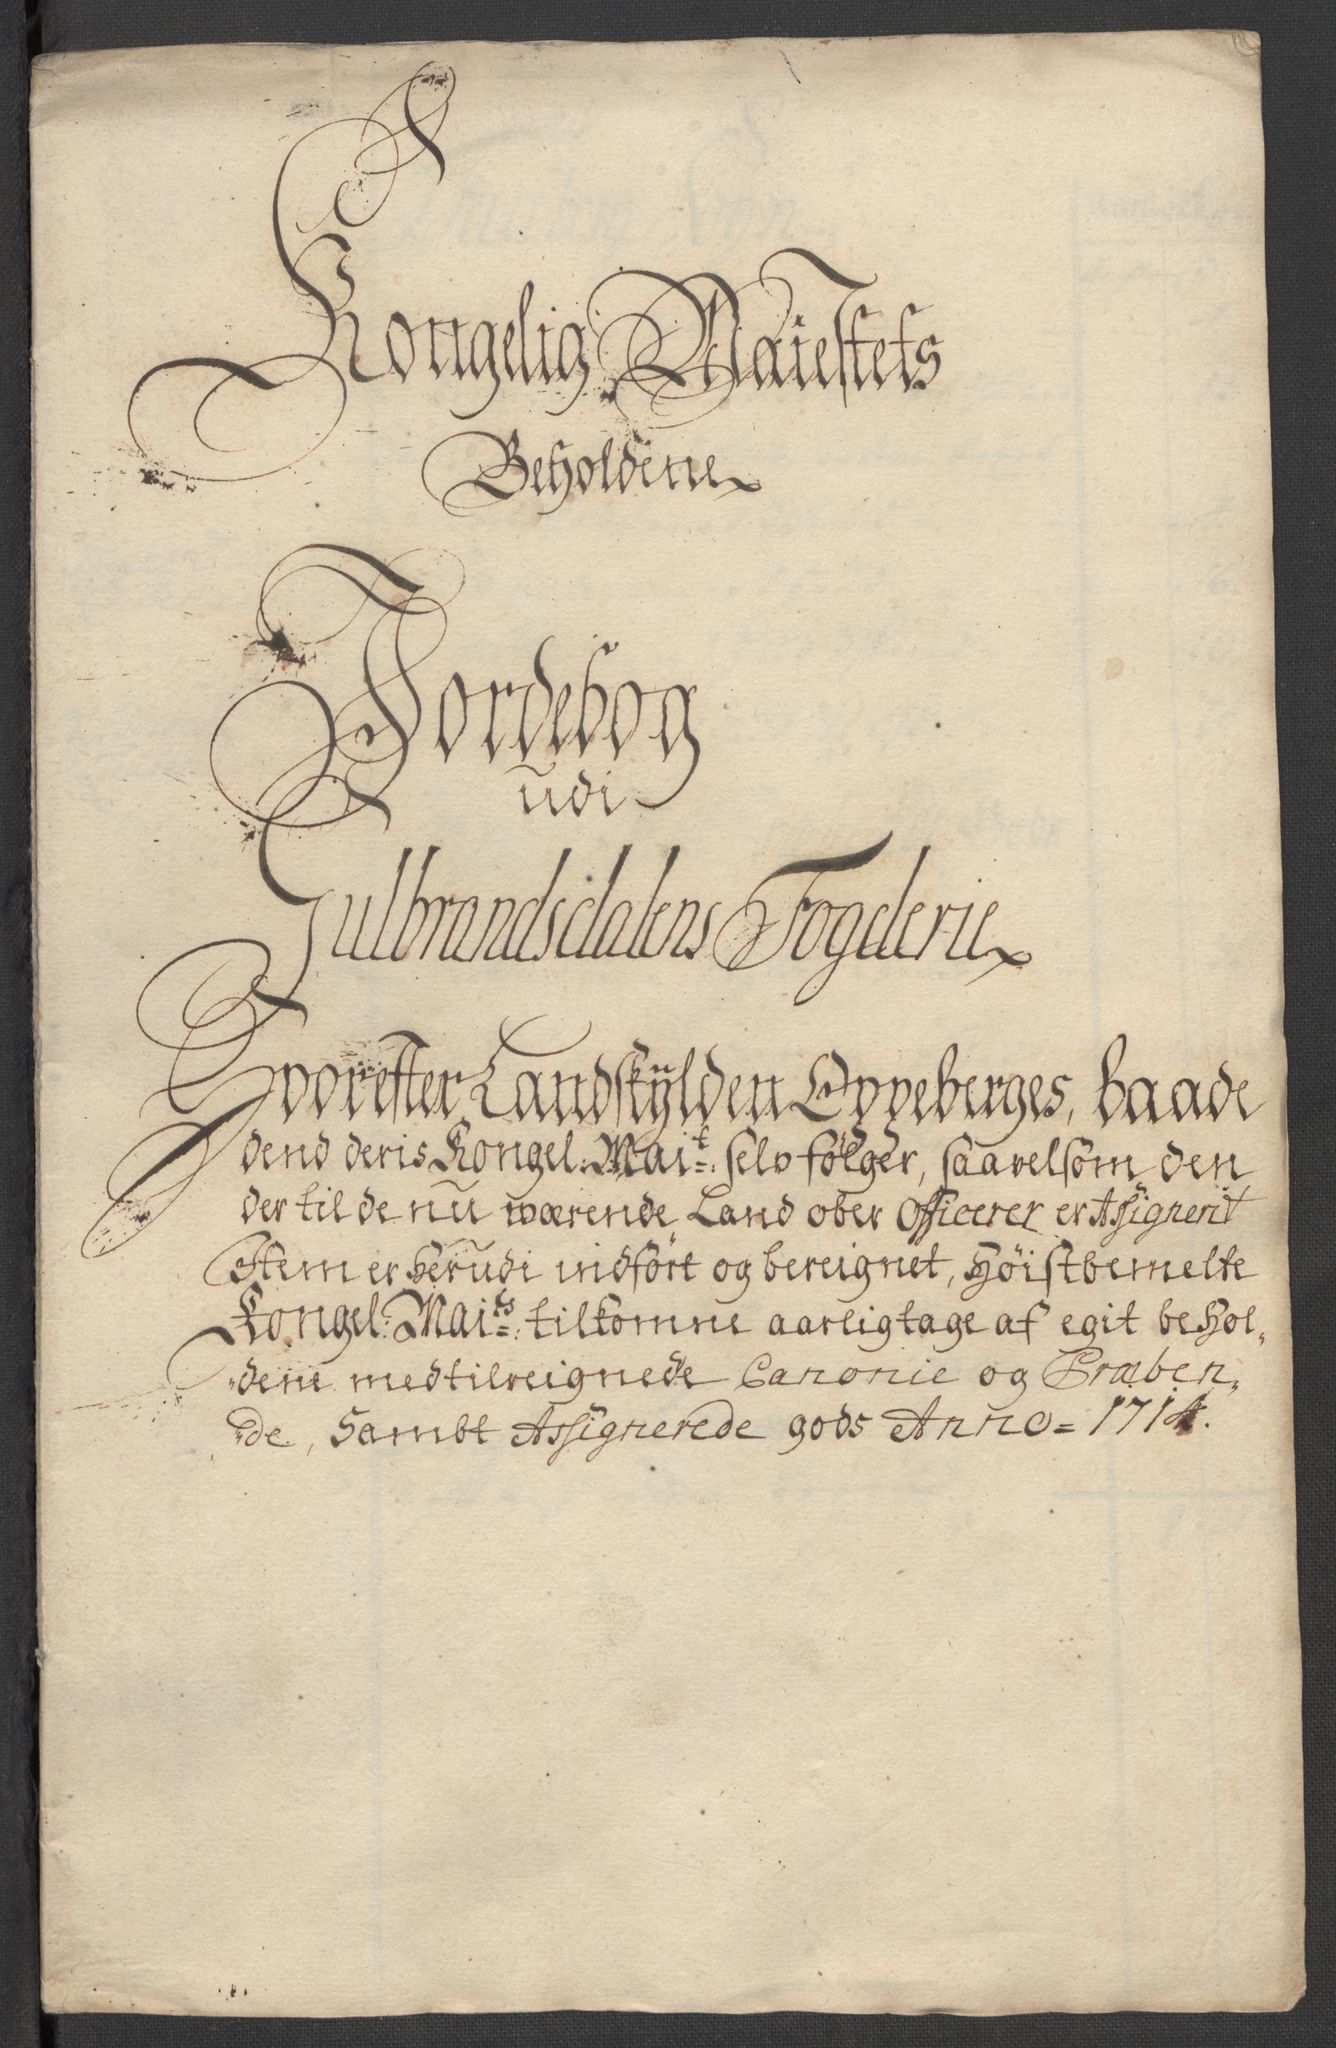 Kongelig Maiestets
Beholdene
Jordebog
udi
Gulbrandsdalens Fogderie
Hvorefter Landskÿlden Oppeberges, baade
dend deris Kongel: Mai:t selv følger, saavelsom den
der til de nu wærende Land ober Officerer er Assignerit
Item er herudi indført og bereignet, Høistbemelte
Kongel: Mai:ts tilkomne aarligtage af egit behol„
„dene med tilreignede Canonie og Præben„
„de, Sambt Assignerede gods Anno = 1714.